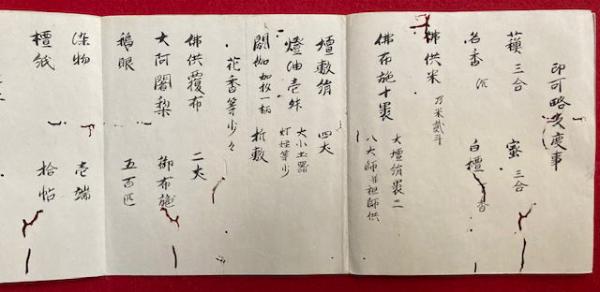 印可略支度事
蘓三合 蜜三合
名香 沉 白檀 香
佛供米 乃米貳斗
佛布施十裹 大壇絹裹二
八大師 祖師供
壇敷絹 四丈
燈油壱 大小土器
灯 等少
閼伽 加 一 折敷
花香等少々
佛供覆布 二丈
大阿闍梨 御布施
鵝眼 五百疋
染物 壱端
檀紙 拾帖